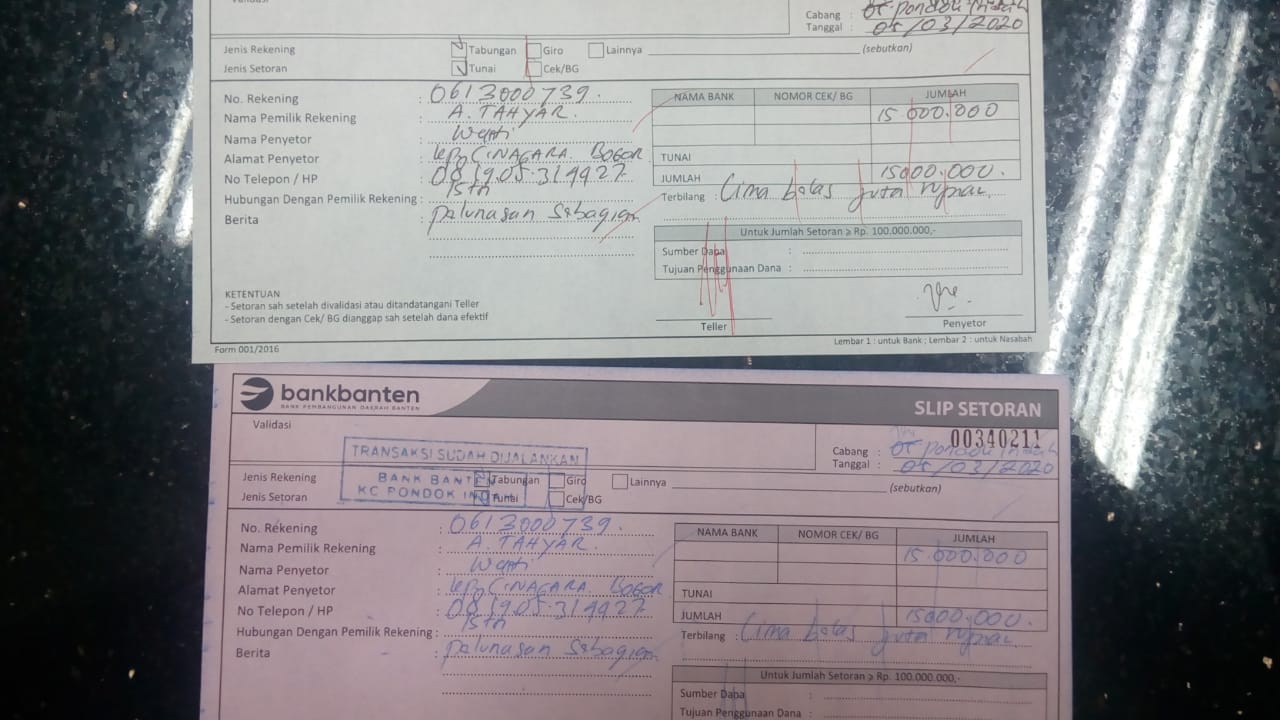 Validasi
Cabang : Pondok Indah
Tanggal : 05/03/2020
Jenis Rekening Tabungan Giro Lainnya (sebutkan)
Jenis Setoran Tunai Cek/BG
No. Rekening : 0613000739.
Nama Pemilik Rekening : A. TAHYAR.
Nama Penyetor : Wanti
Alamat Penyetor : kp. CINAGARA BOGOR
No Telepon / HP : 081905314927
Hubungan Dengan Pemilik Rekening : Istri
Berita : pelunasan Sebagian
NAMA BANK NOMOR CEK/ BG JUMLAH
15.000.000
TUNAI
JUMLAH 15000.000.
Terbilang : Lima belas juta rupiah
Untuk Jumlah Setoran ≥ Rp. 100.000.000,-
Sumber Dana :
Tujuan Penggunaan Dana :
KETENTUAN
- Setoran sah setelah divalidasi atau ditandatangani Teller
- Setoran dengan Cek/ BG dianggap sah setelah dana efektif
Teller Penyetor
Form 001/2016
Lembar 1 : untuk Bank ; Lembar 2 : untuk Nasabah
bankbanten
BANK PEMBANGUNAN DAERAH BANTEN
SLIP SETORAN
Validasi
00340211
TRANSAKSI SUDAH DIJALANKAN
BANK BANTEN
KC PONDOK INDAH
Cabang : Pondok Indah
Tanggal : 05/03/2020
Jenis Rekening Tabungan Giro Lainnya (sebutkan)
Jenis Setoran Tunai Cek/BG
No. Rekening : 0613000739.
Nama Pemilik Rekening : A. TAHYAR.
Nama Penyetor : Wanti
Alamat Penyetor : kp. CINAGARA BOGOR
No Telepon / HP : 081905314927
Hubungan Dengan Pemilik Rekening : Istri
Berita : pelunasan Sebagian
NAMA BANK NOMOR CEK/ BG JUMLAH
15.000.000
TUNAI
JUMLAH 15000.000.
Terbilang : Lima belas juta rupiah
Untuk Jumlah Setoran ≥ Rp. 100.000.000,-
Sumber Dana :
Tujuan Penggunaan Dana :